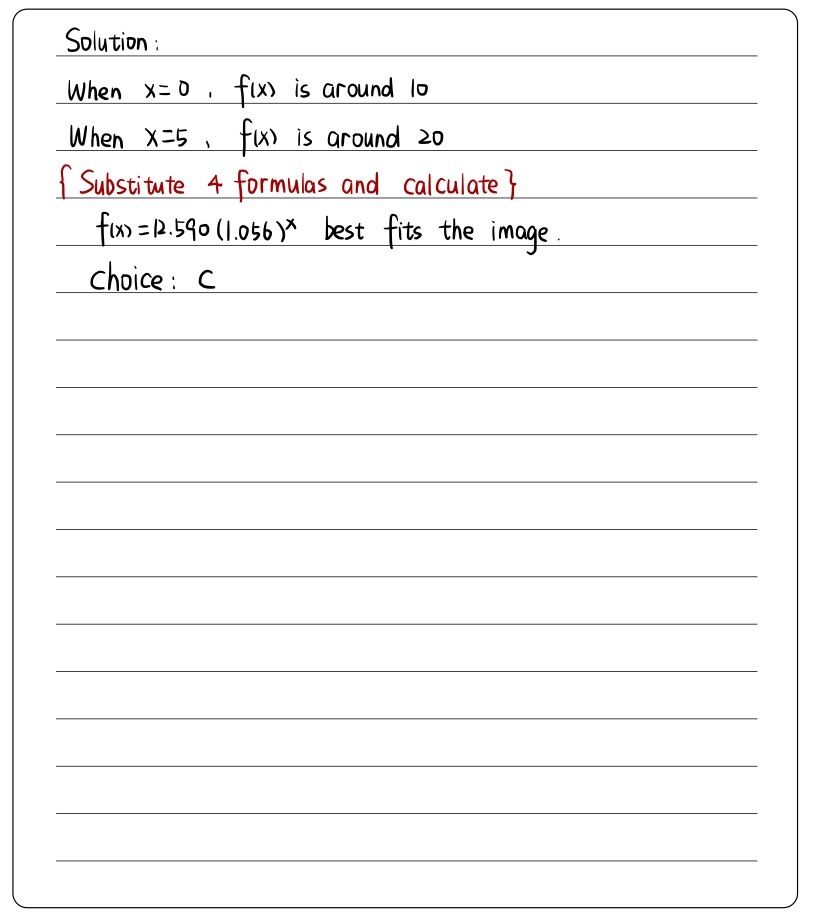 Solution:
When x=0, f(x) is around 10
When x=5, f(x) is around 20
{Substitute 4 formulas and calculate}
f(x)=12.590(1.056)ˣ best fits the image.
Choice: C